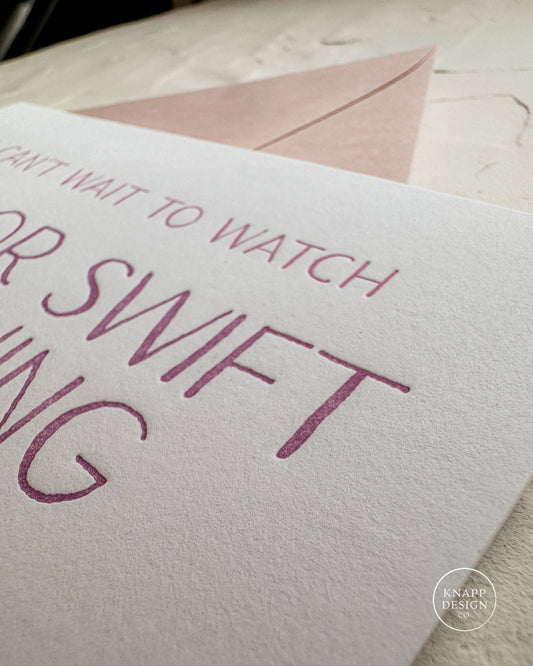 CAN'T WAIT TO WATCH
OR SWIFT
NG
KNAPP
DESIGN
CO.